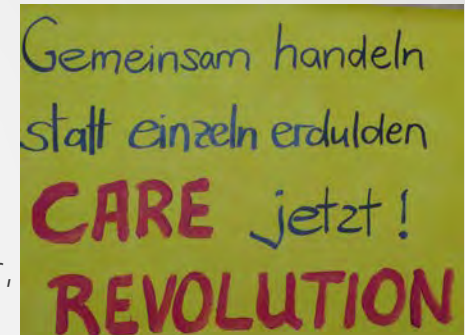 Gemeinsam handeln
statt einzeln erdulden
CARE jetzt!
REVOLUTION